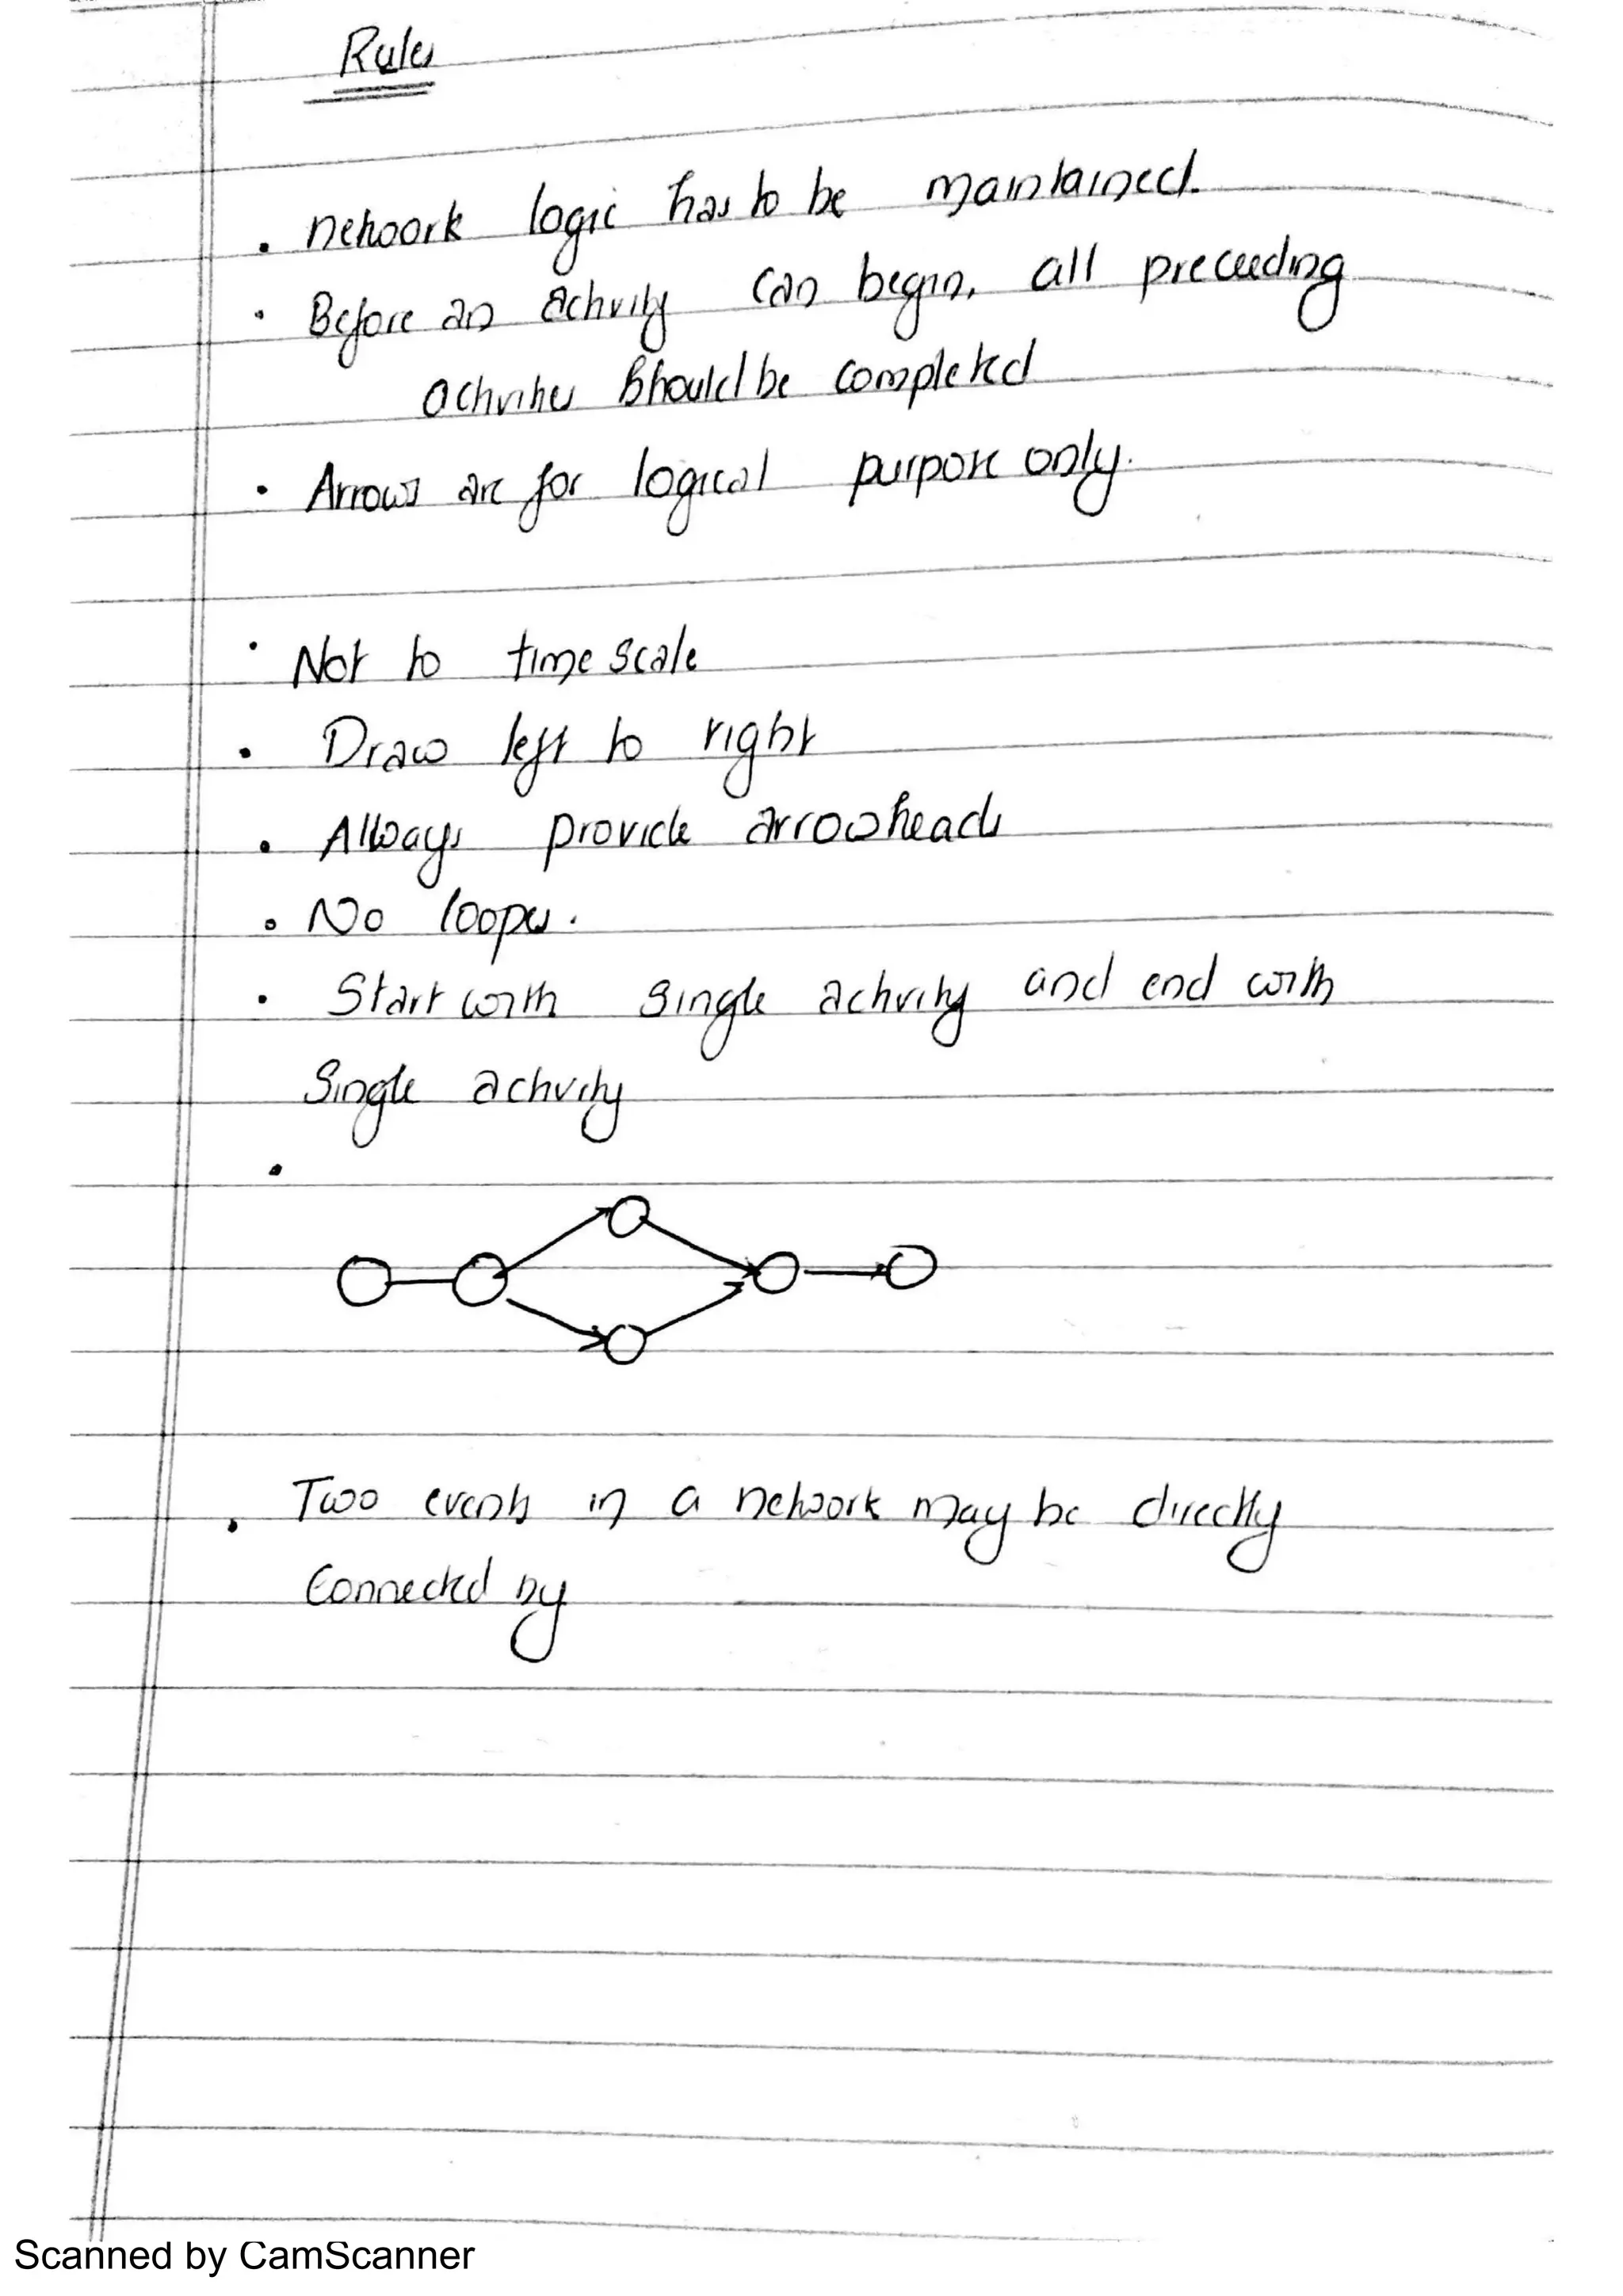 Rules
• network logic has to be maintained.
• Before an activity can begin, all preceeding
activities should be completed
• Arrows are for logical purpose only.
• Not to time scale
• Draw left to right
• Always provide arrowheads
• No loopes.
• Start with single activity and end with
Single activity
•
• Two events in a network may be directly
Connected by
Scanned by CamScanner